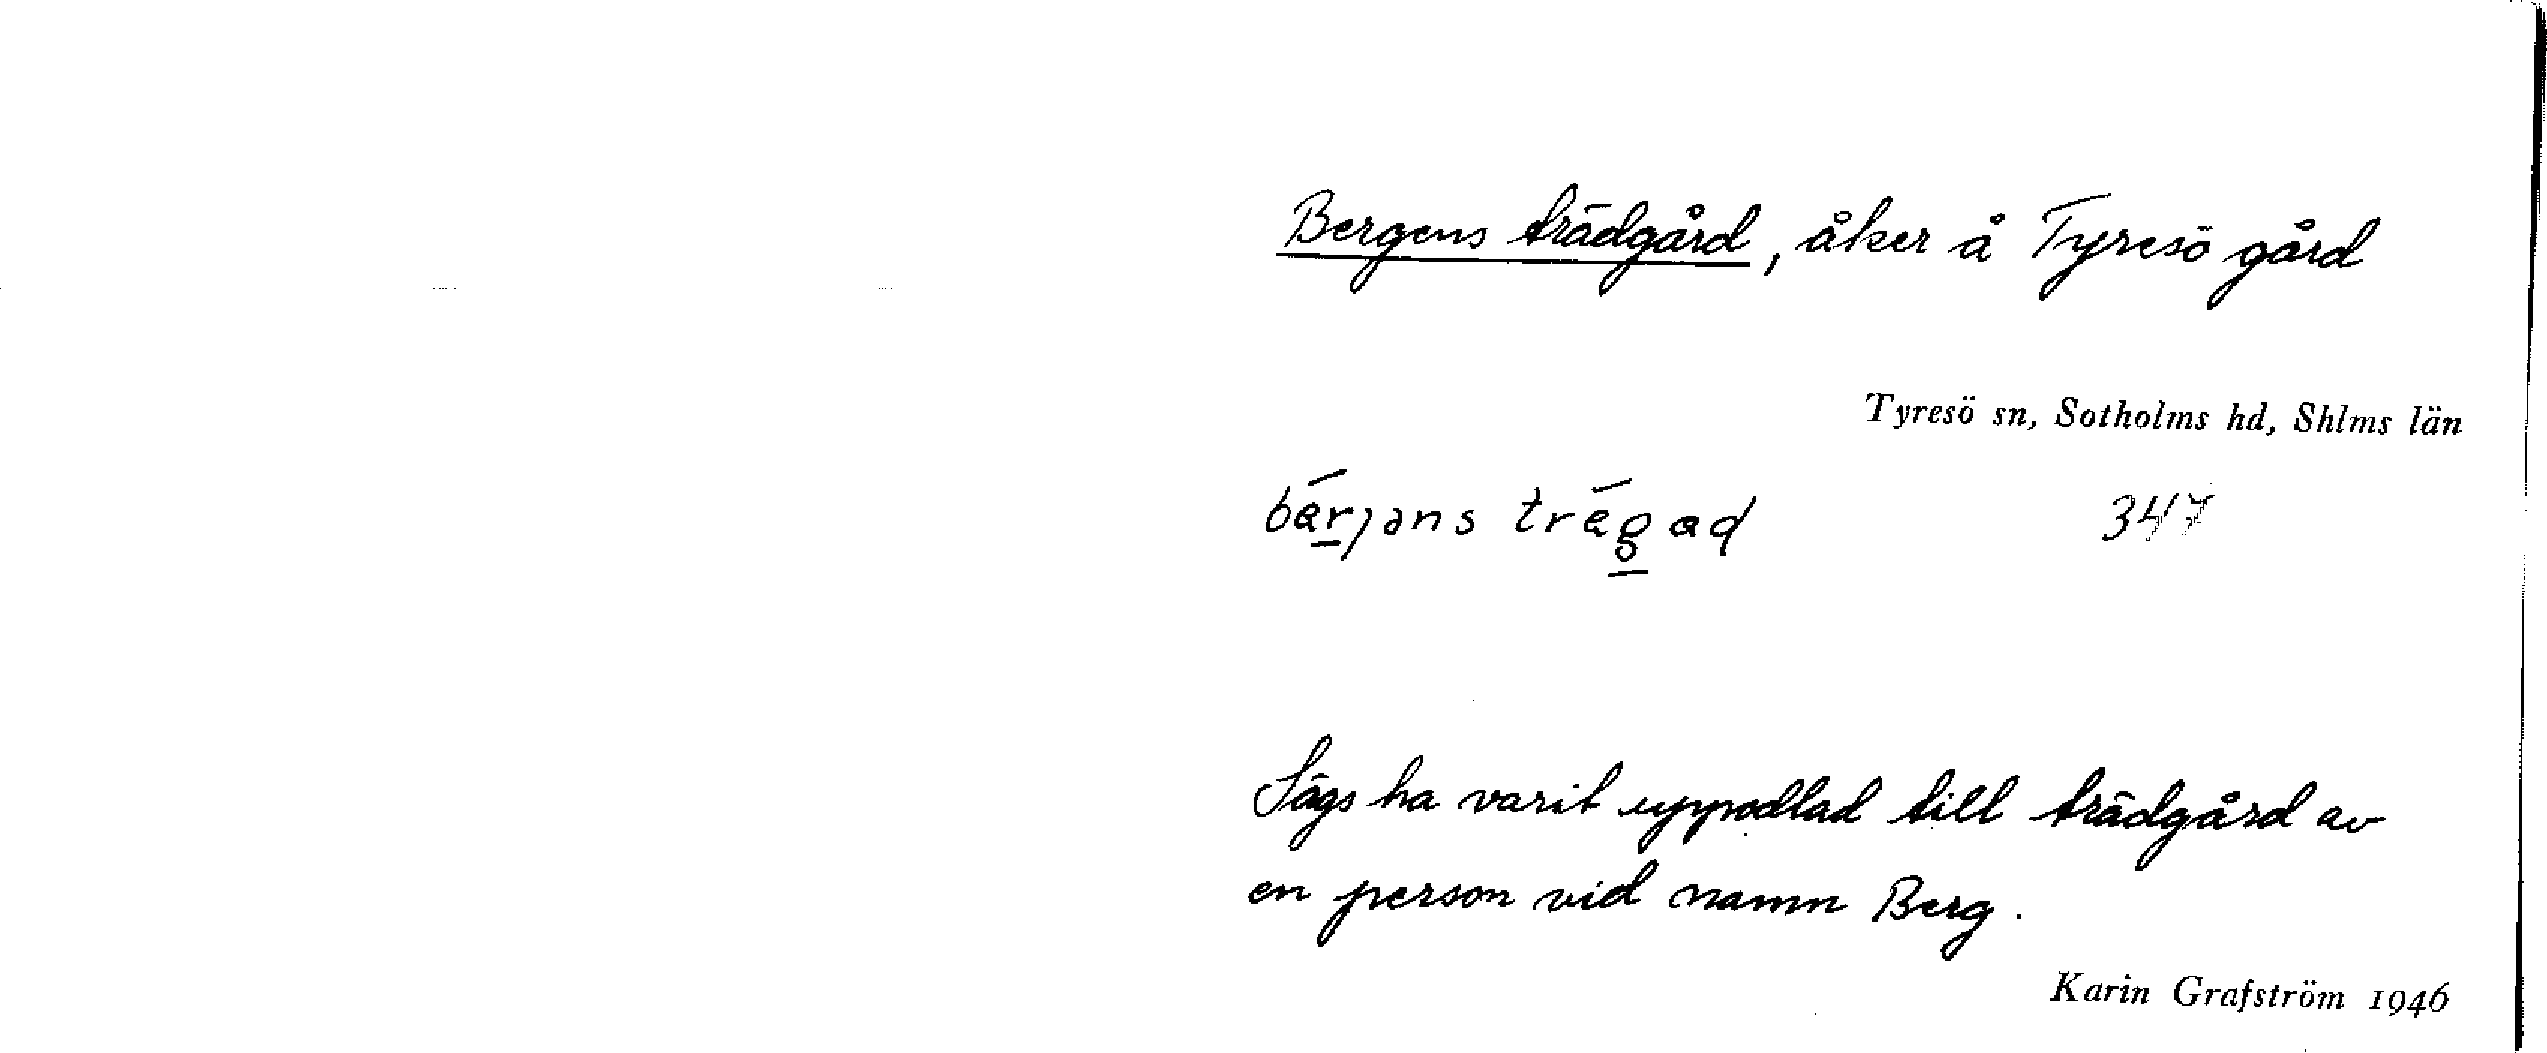 Bergens trädgård, åker å Tyresö gård
Tyresö sn, Sotholms hd, Shlms län
bärjəns trägad 347
Sägs ha varit uppodlad till trädgård av
en person vid namn Berg.
Karin Grafström 1946